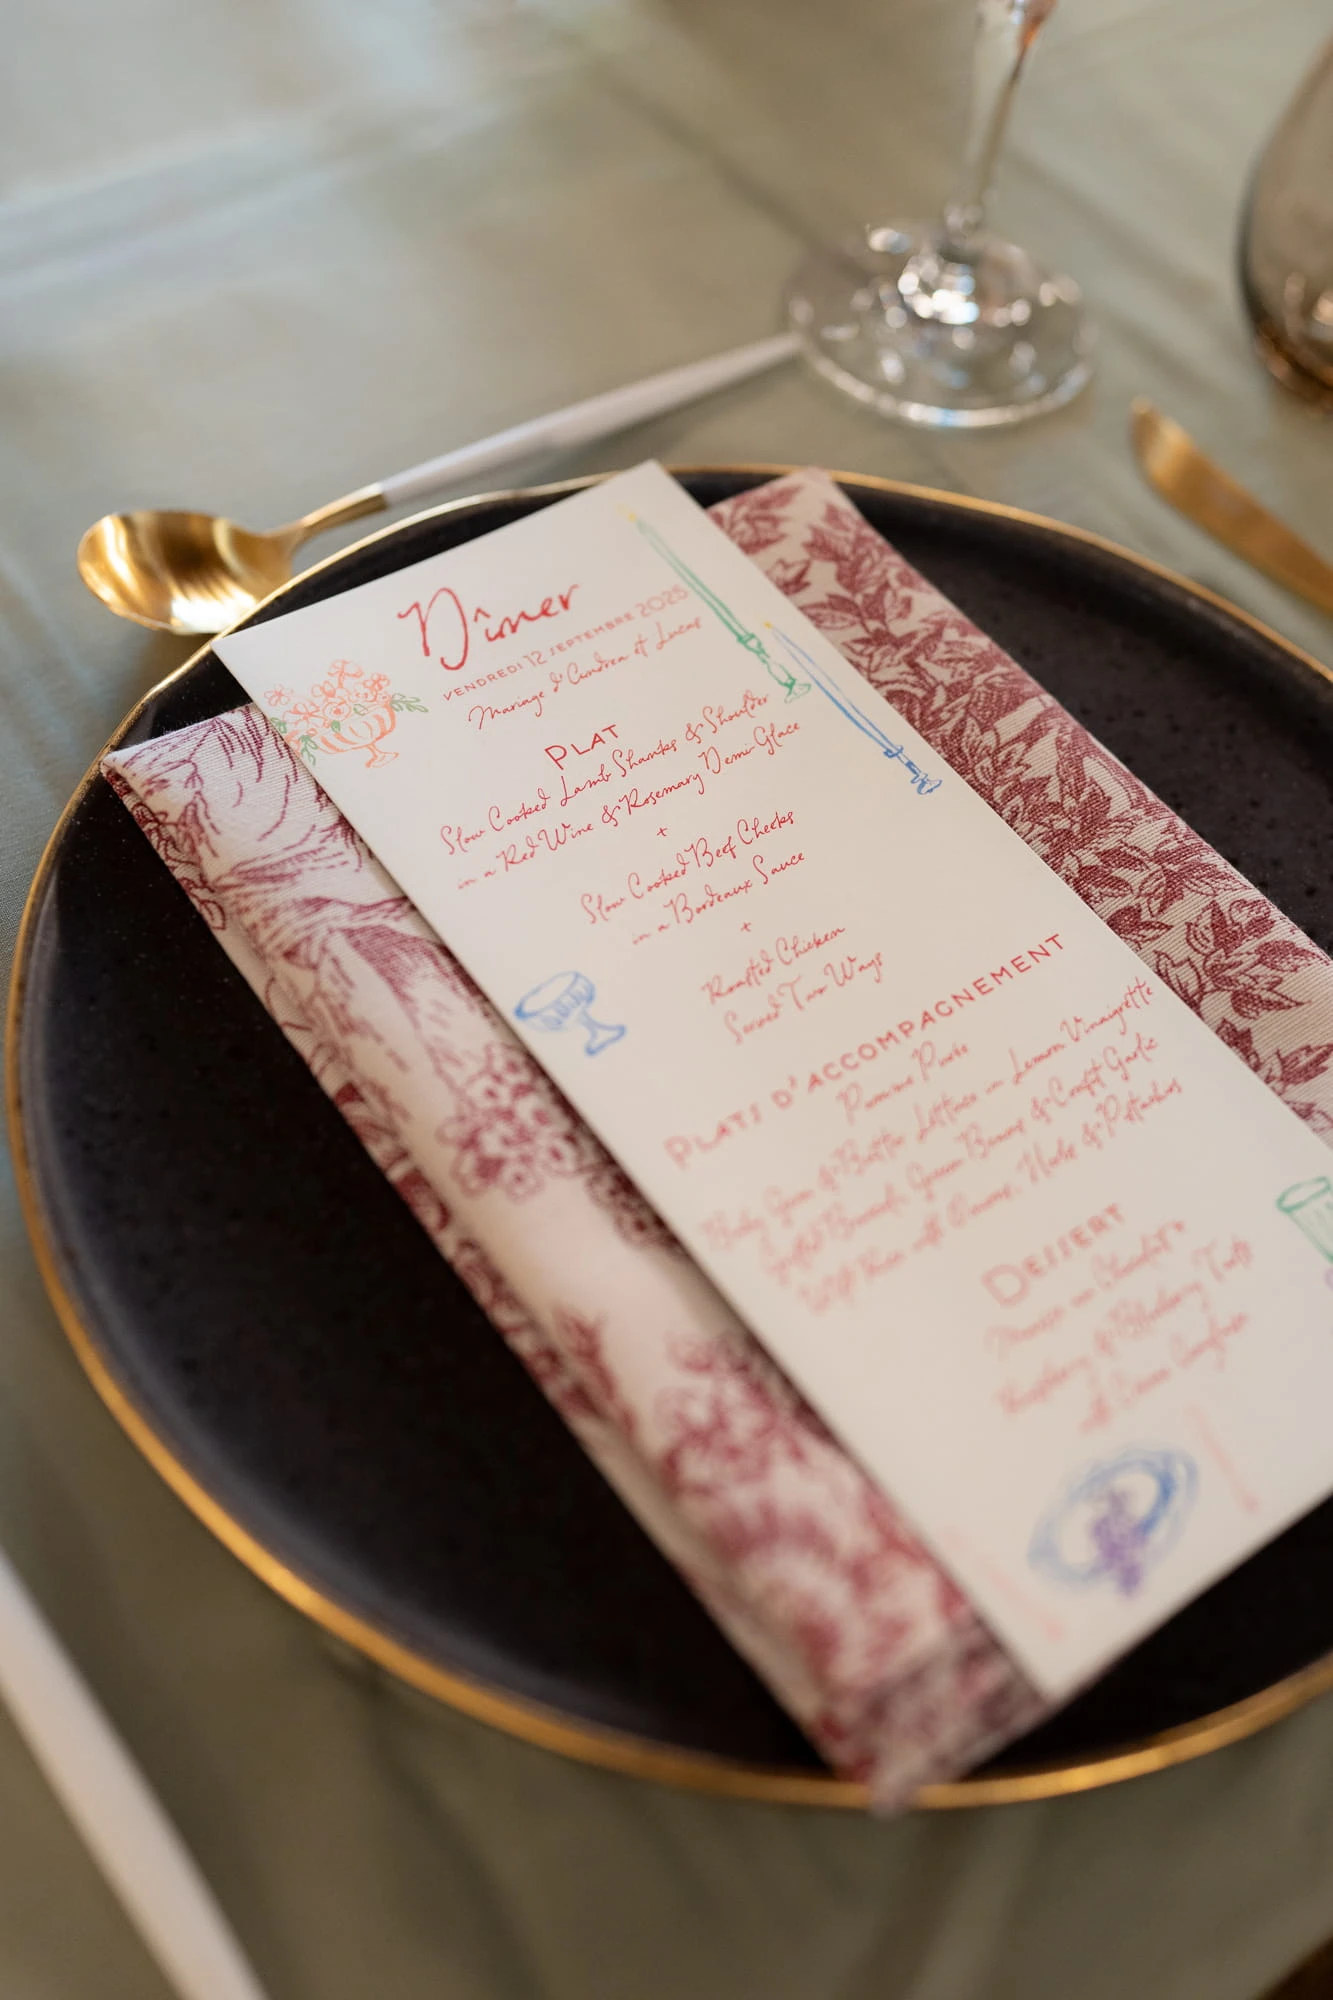 Dîner
VENDREDI 12 SEPTEMBRE 2025
Mariage d'Andrea et Lucas
PLAT
Slow Cooked Lamb Shanks & Shoulder
in a Red Wine & Rosemary Demi Glace
+
Slow Cooked Beef Cheeks
in a Bordeaux Sauce
+
Roasted Chicken
Served Two Ways
PLATS D'ACCOMPAGNEMENT
Pomme Purée
Baby Gem & Butter Lettuce in Lemon Vinaigrette
Sautéed Broccoli, Green Beans & Confit Garlic
Wild Rice with Onions, Herbs & Pistachios
DESSERT
Mousse au Chocolat
Raspberry & Blueberry Tarts